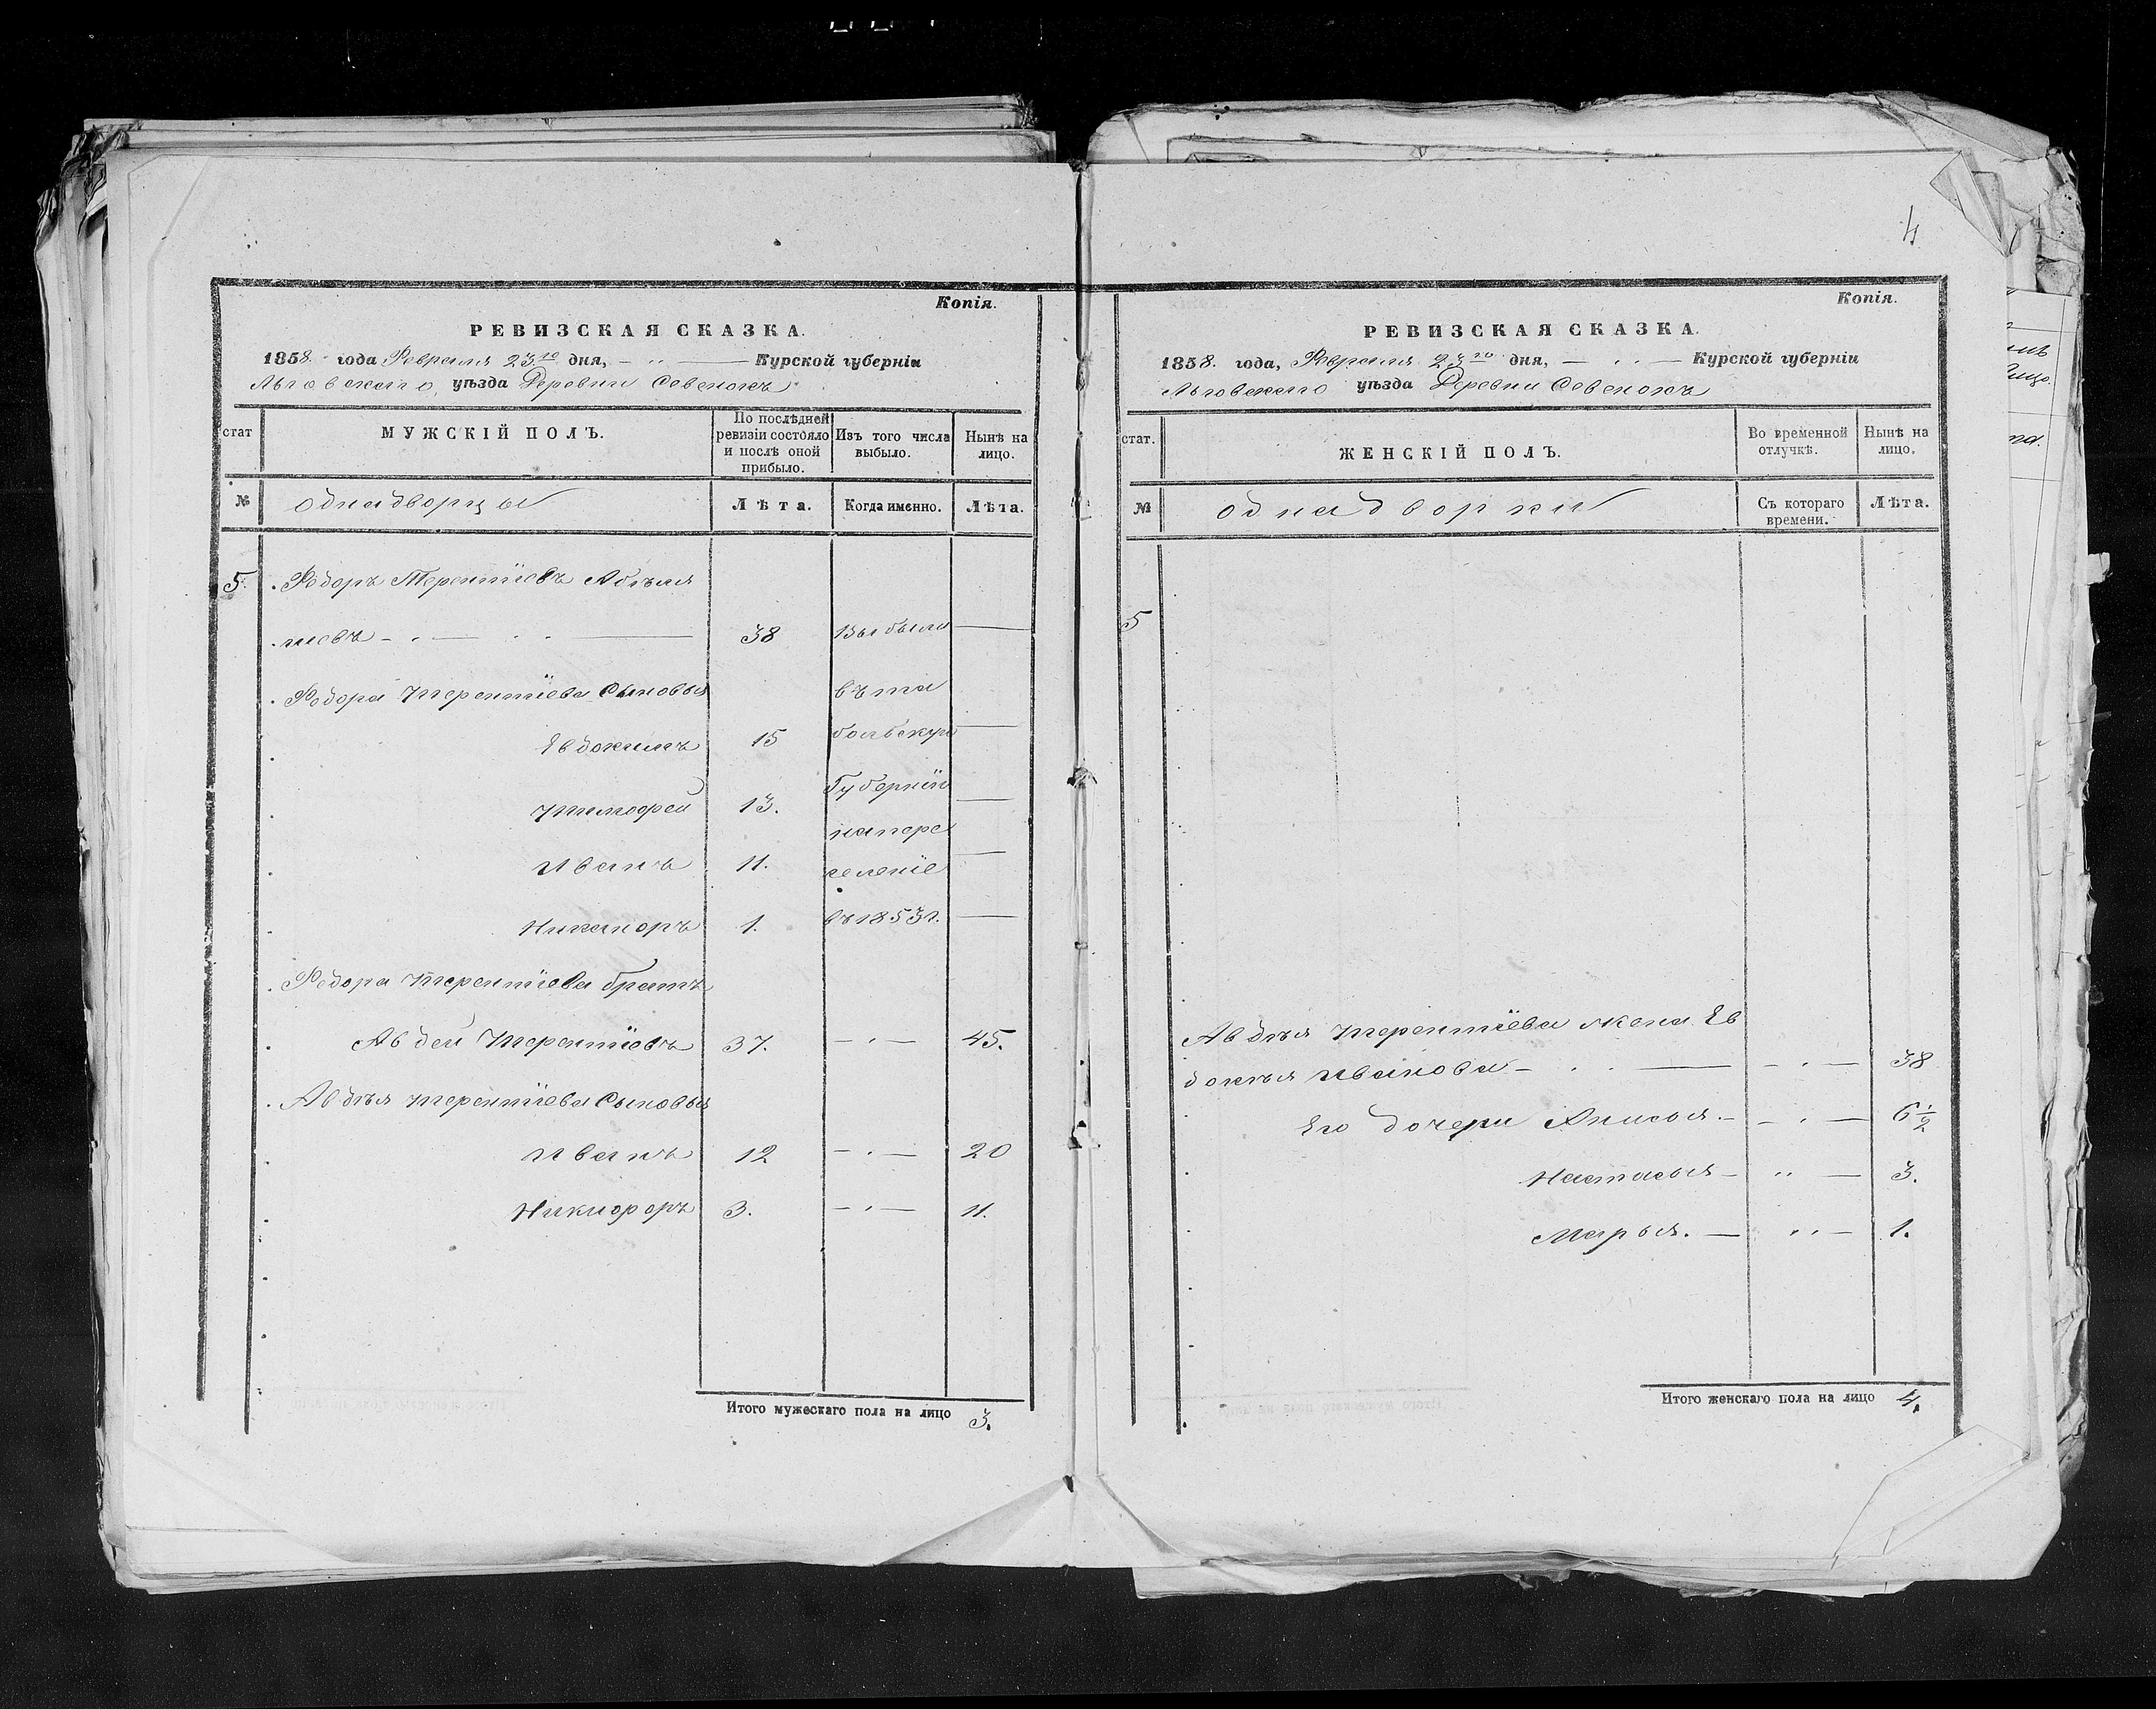 4
Копія.
РЕВИЗСКАЯ СКАЗКА.
1858. года Февраля 23го дня, — „ — Курской губерніи
Льговскаго, уѣзда Деревни Совенокъ
стат
МУЖСКІЙ ПОЛЪ.
По послѣдней ревизіи состояло и послѣ оной прибыло.
Изъ того числа выбыло.
Нынѣ на лицо.
№
однадворцы
Лѣта.
Когда именно.
Лѣта.
5. Федоръ Терентіевъ
38 Выбыли —
Федора Терентіева сыновья въ то
Евдокимъ 15 —
Тимофей 13. Губернію —
на пере
Иванъ 11. селеніе —
Никаноръ 1. въ 1853 г. —
Федора Терентіева братъ
Авдей Терентіевъ 37. — 45.
Авдѣя Терентіева сыновья
Иванъ 12 — 20
Никифоръ 3. — 11.
Итого мужескаго пола на лицо 3.
Копія.
РЕВИЗСКАЯ СКАЗКА.
1858. года, Февраля 23го дня, — Курской губерніи
Льговскаго уѣзда Деревни Совенокъ
стат.
ЖЕНСКІЙ ПОЛЪ.
Во временной отлучкѣ.
Нынѣ на лицо.
№
однадворки
Съ котораго времени.
Лѣта.
5
Авдѣя Терентіева жена Ев
докѣя Иванова — — 38
Его дочери Анисья — — 6 1/2
Настасья — „ — 3.
Марья. — „ — 1.
Итого женскаго пола на лицо 4.